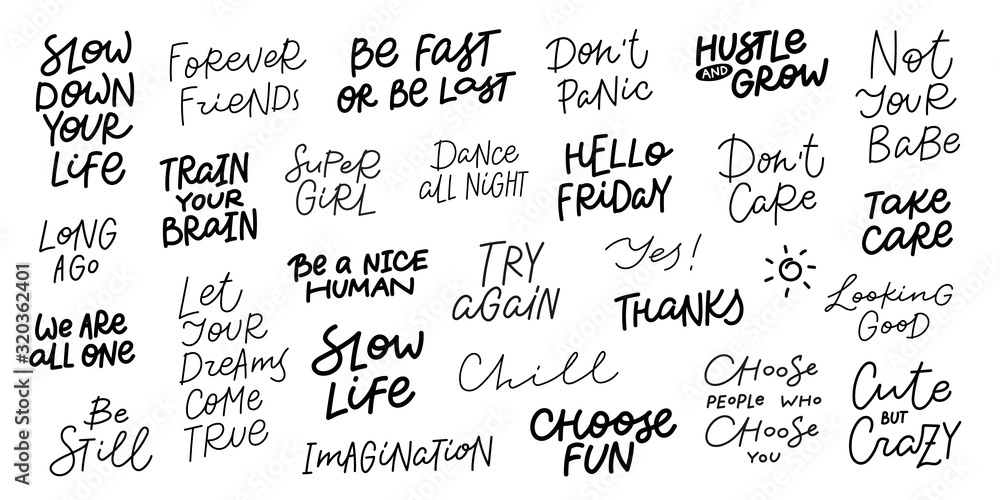 SLOW
DOWN
YOUR
LiFE
FOREVER
FRiENDS
Be FAST
OR Be LAST
DON'T
PANiC
HUSTLE
AND
GROW
NOT
YOUR
BABE
TRAIN
YOUR
BRAIN
SuPeR
GiRL
DANCE
aLL NiGHT
HELLO
FRiDAY
DON'T
CARe
TAKE
CARE
LONG
AGO
Be a NICE
HUMAN
TRY
aGAiN
Yes!
THANKS
Looking
GOOD
We ARe
aLL ONE
Let
YOUR
DReAMS
COMe
TRUE
SLOW
LiFE
Chill
CHOOSe
PEOPLE WHO
CHOOSe
YOU
Cute
BUT
CRaZY
Be
STiLL
IMAGiNATiON
CHOOSE
FUN
Adobe Stock | #320362401
Adobe Stock